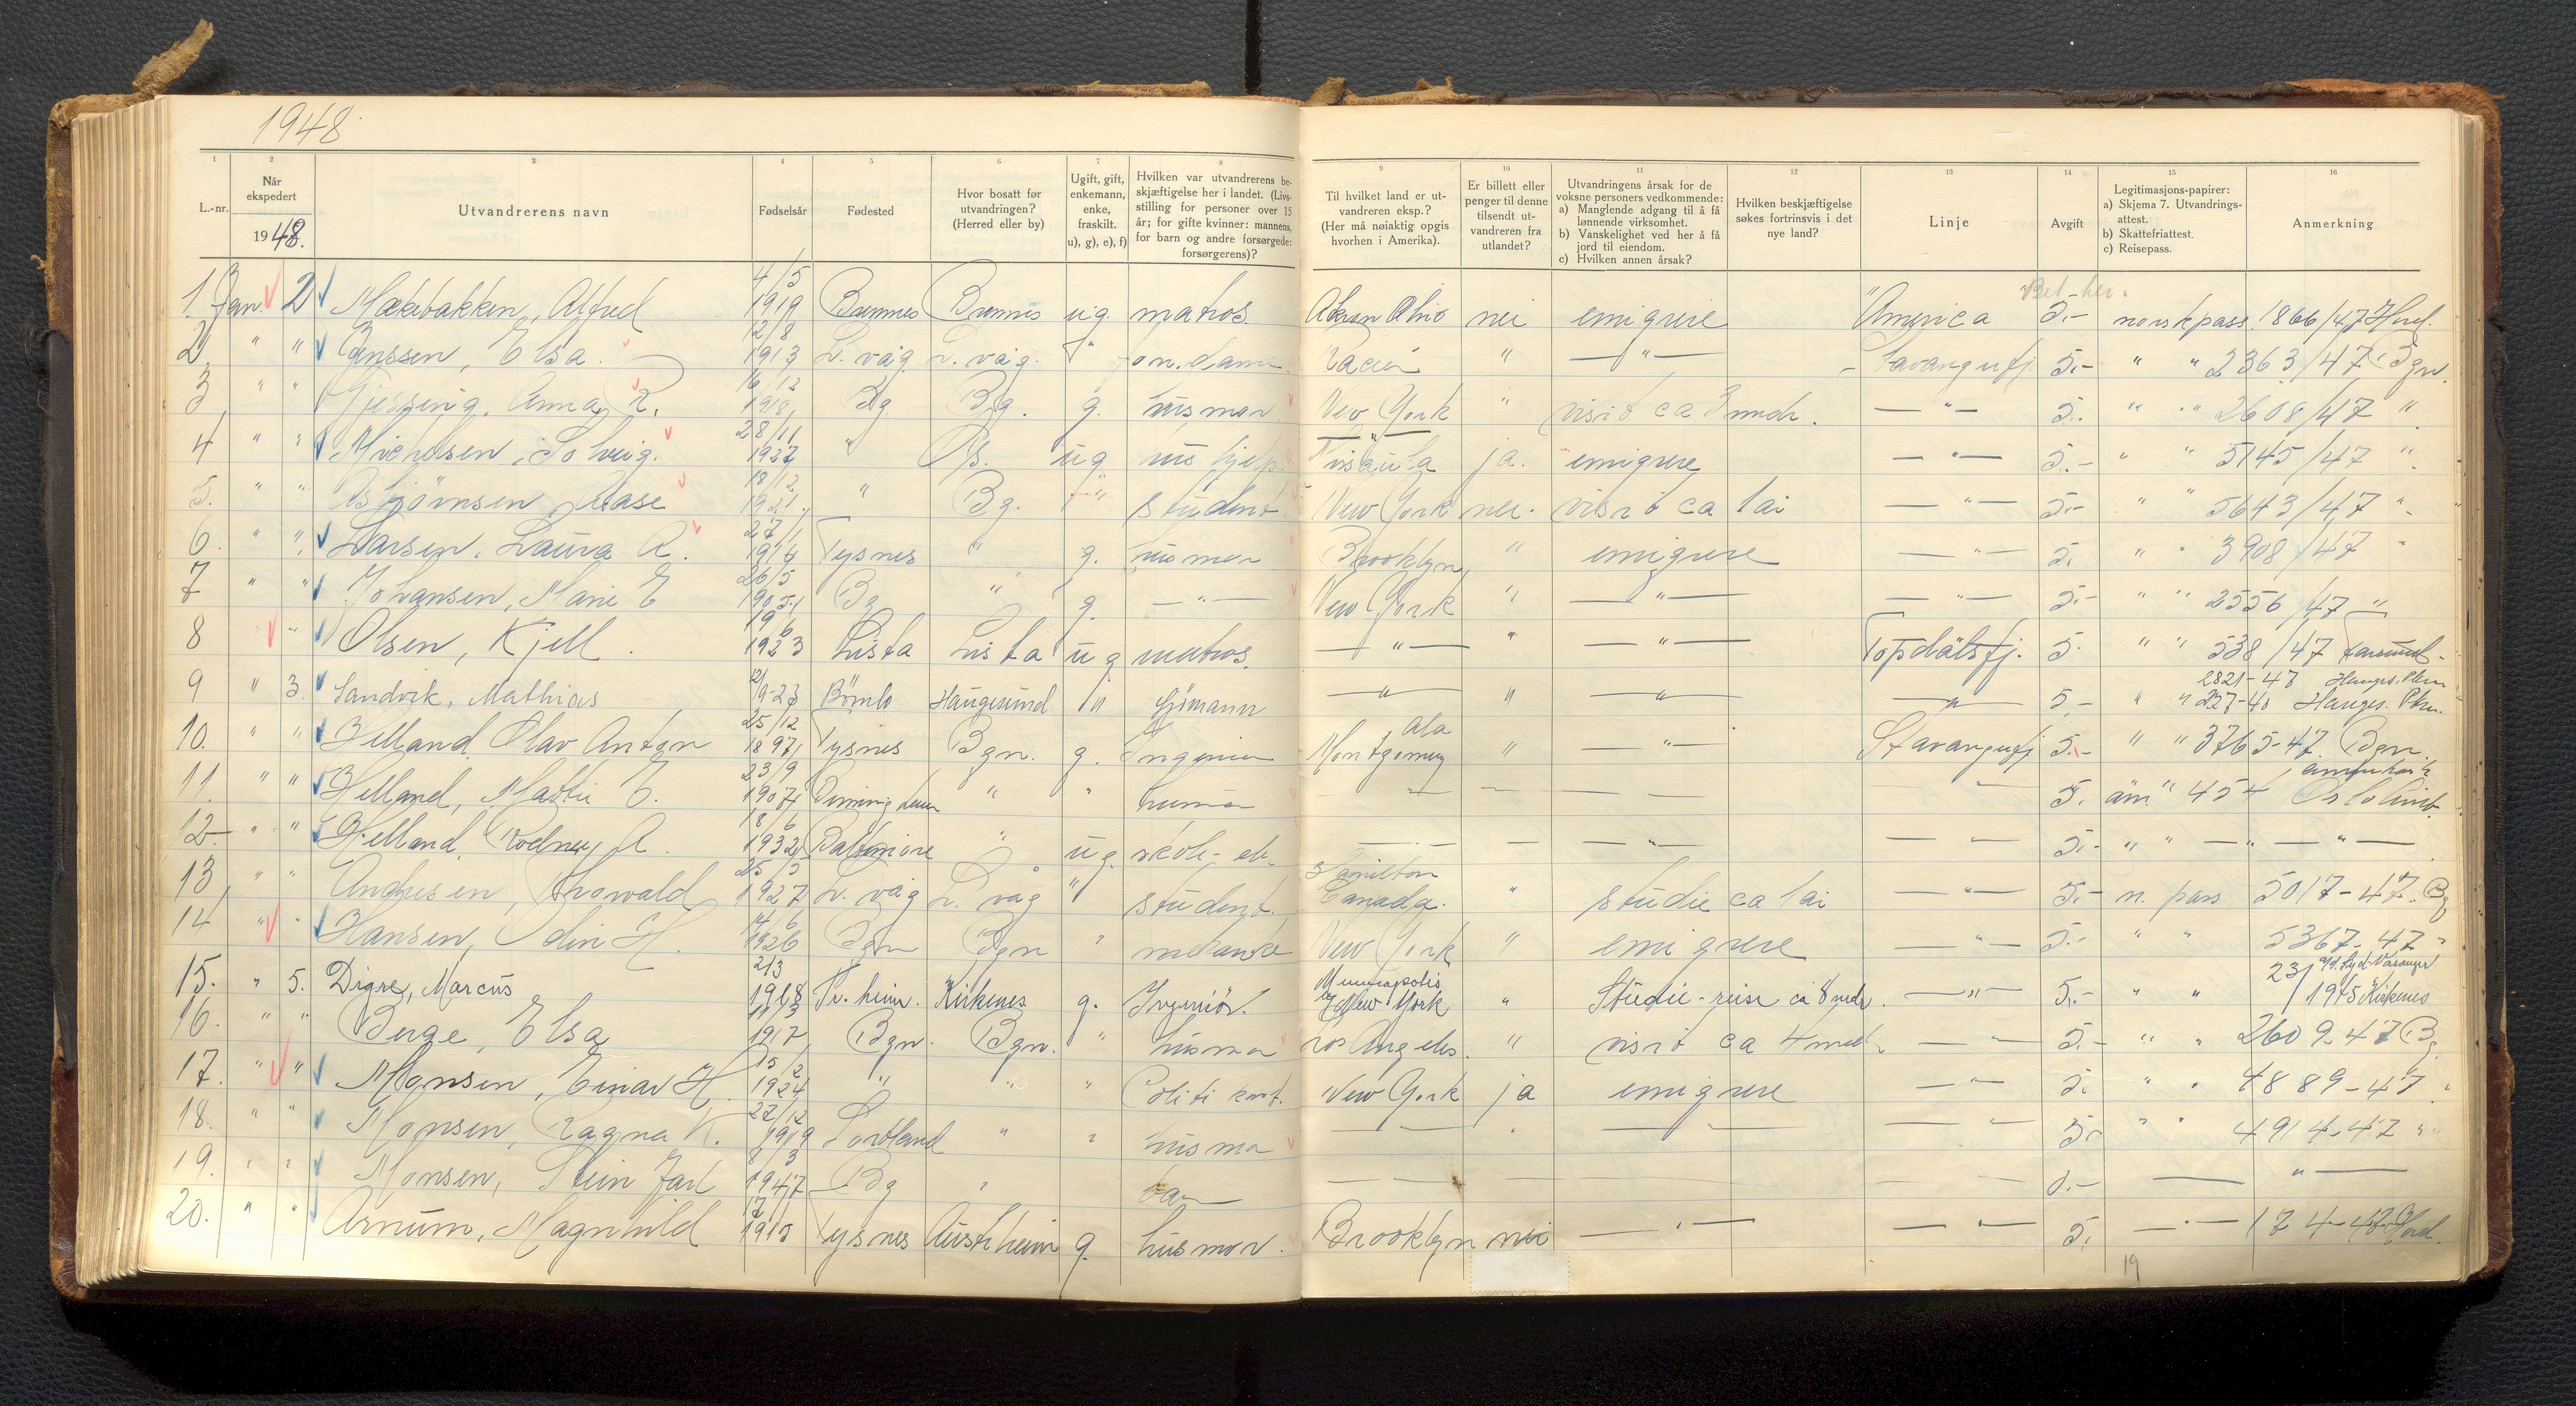 1948
1 2 3 4 5 6 7 8 9 10 11 12 13 14 15 16
L.-nr.
Når ekspedert 1948.
Utvandrerens navn
Fødselsår
Fødested
Hvor bosatt før utvandringen? (Herred eller by)
Ugift, gift, enkemann, enke, fraskilt. u), g), e), f)
Hvilken var utvandrerens beskjæftigelse her i landet. (Livsstilling for personer over 15 år; for gifte kvinner: mannens, for barn og andre forsørgede: forsørgerens)?
Til hvilket land er utvandreren eksp.? (Her må nøiaktig opgis hvorhen i Amerika).
Er billett eller penger til denne tilsendt utvandreren fra utlandet?
Utvandringens årsak for de voksne personers vedkommende:
a) Manglende adgang til å få lønnende virksomhet.
b) Vanskelighet ved her å få jord til eiendom.
c) Hvilken annen årsak?
Hvilken beskjæftigelse søkes fortrinsvis i det nye land?
Linje
Avgift
Legitimasjons-papirer:
a) Skjema 7. Utvandringsattest.
b) Skattefriattest.
c) Reisepass.
Anmerkning
1 Jan. 2 Alfred 4/5 1919 Bremnes Bremnes ug. matros. Akron Ohio nei emigrere America 5.- norsk pass. 1866/47 Hord.
2. " " Janssen, Elsa. 12/8 1913 L. våg L. våg. " " —"— Stavangerfj. 5.- " " 2363/47 Bgn.
3 " " Gjessing, Anna R. 16/12 1918 Bg Bg. g. husmor New York " visit ca 3 mdr. —"— 5.- " " 2608/47 "
4 " " Solveig. 28/11 1927 " Bg. ug hushjelp ja. emigrere —"— 5.- " " 5145/47 "
5. " " Aase 18/12 1921 " Bg. " student New York nei. visit ca 1 år —"— 5.- " " 5643/47 "
6. " " Larsen, Laura A. 27/1 1914 Tysnes " g. husmor Brooklyn, " emigrere —"— 5. " " 3908/47 "
7 " " Johansen, Marie E 26/5 1905 Bg " g. —"— New York " —"— —"— 5.- " " 2556/47 "
8 " Olsen, Kjell. 19/6 1923 Lista Lista ug matros. —"— " —"— Topdalsfj. 5. " " 538/47 Farsund
9 " 3. Sandvik, Mathias 19-23 Bömlo Haugesund " Sjömann —"— " —"— —"— 5,- " " 227-40 Hauges. Pkm.
2821-47 Hauges. Pkm
10. " " Helland, Olav Anton 25/12 1897 Tysnes Bgn. g. Ingeniør Montgomery Ala " —"— Stavangerfj 5.- " " 3765-47 Bgn.
11. " " Helland, Mattie E. 23/9 1907 " " husmor " — — " 5. am. " 454 Oslo
12- " " Helland, Rodney A. 18/6 1932 Baltimore " ug. skole-el. — — —"— —"— 5.- " " —"—"—
13 " " Andresen, Thorvald 25/5 1927 L. våg L. våg " student. Hamilton Canada. " studie ca 1 år —"— 5.- n. pass 5017-47. Bg
14 " " Hansen, Odin H. 14/6 1926 Bgn Bgn " mekaniker New York " emigrere —"— 5.- " " 5367-47 "
15. " 5. Digre, Marcus 2/3 1918 Tr. heim. Kirkenes g. Ingeniör. Minneapolis New York " Studie-reise ca 8 mdr. —"— 5.- " " 23/1945 Kirkenes
16. " " Berge, Elsa 1917 Bgn. Bgn. " husmor Los Angeles. " visit ca 4 mdr —"— 5.- " " 2609-47 Bg
17. " " Monsen, Einar H. 15/2 1924 " " " Politi konst. New York ja emigrere —"— 5. " " 4889-47 "
18. " " Monsen, Ragna K. 27/12 1919 Sortland " " husmor — " — —"— 5.- " " 4914-47 "
19. " " Monsen, Stein Jarl 8/3 1947 Bg " barn — — — — 5.- — "—
20. " " Arnum, Magnhild 1910 Tysnes Austrheim g. husmor. Brooklyn nei —"— —"— 5. —"— 174-47 Hord.
19